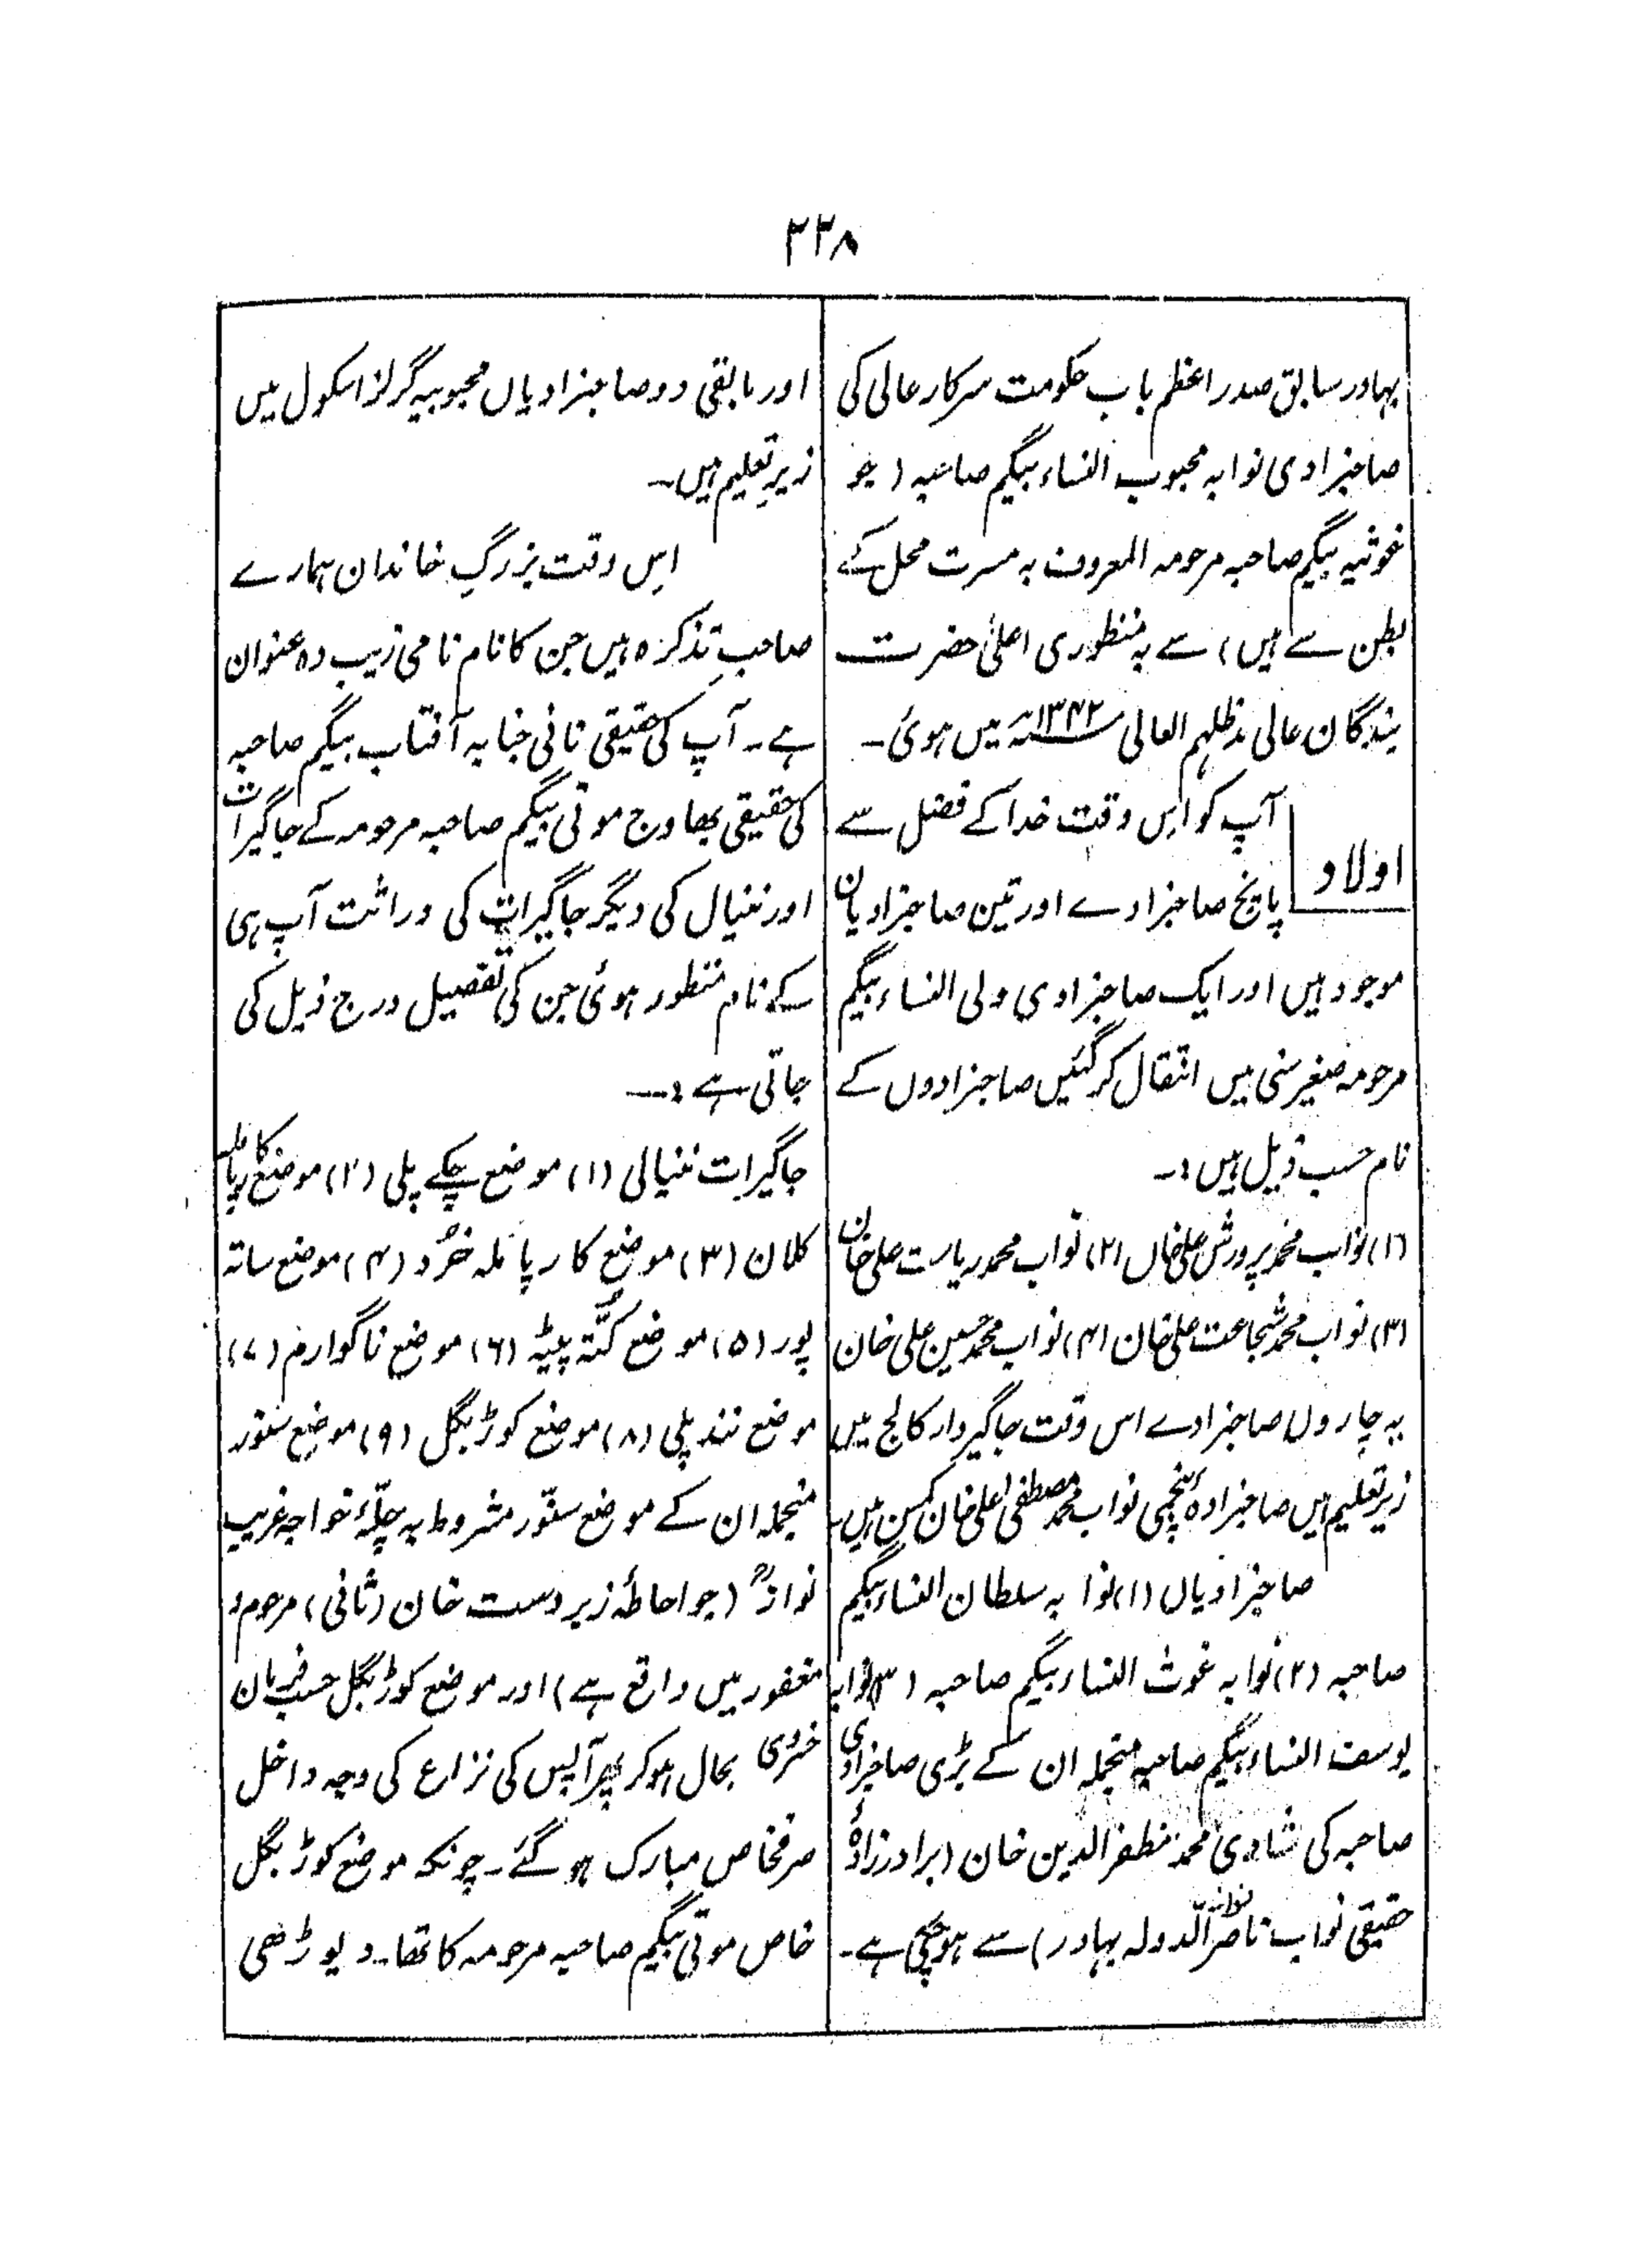 ۲۳۸
بہادر سابق صدر اعظم باب حکومت سرکار عالی کی
صاحبزادی نوابہ محبوب النساء بیگم صاحبہ (جو
غوثیہ بیگم صاحبہ مرحومہ المعروف بہ مسرت محل کے
بطن سے ہیں) سے بہ منظوری اعلیٰ حضرت
بندگان عالی مدظلہم العالی ۱۳۴۲ھ میں ہوئی۔
اولاد
آپ کو اس وقت خدا کے فضل سے
پانچ صاحبزادے اور تین صاحبزادیاں
موجود ہیں اور ایک صاحبزادی ولی النساء بیگم
مرحومہ صغیر سنی میں انتقال کر گئیں صاحبزادوں کے
نام حسب ذیل ہیں:۔
(۱) نواب محمد پرورش علی خاں (۲) نواب محمد ریاست علی خان
(۳) نواب محمد شجاعت علی خان (۴) نواب محمد حسین علی خان
یہ چاروں صاحبزادے اس وقت جاگیردار کالج میں
زیر تعلیم ہیں صاحبزادہ پنجمی نواب محمد مصطفی علی خان کمسن ہیں۔
صاحبزادیاں (۱) نوابہ سلطان النساء بیگم
صاحبہ (۲) نوابہ غوث النساء بیگم صاحبہ (۳) نوابہ
یوسف النساء بیگم صاحبہ منجملہ ان کے بڑی صاحبزادی
صاحبہ کی شادی محمد مظفر الدین خان (برادر زادۂ
حقیقی نواب ناصر نواز الدولہ بہادر) سے ہوچکی ہے۔
اور مابقی دو صاحبزادیاں محبوبیہ گرلز اسکول میں
زیرِ تعلیم ہیں۔
اس وقت بزرگِ خاندان ہمارے
صاحبِ تذکرہ ہیں جن کا نام نامی زیب دہ عنوان
ہے۔ آپ کی حقیقی نانی جنابہ آفتاب بیگم صاحبہ
کی حقیقی بھاوج موتی بیگم صاحبہ مرحومہ کے جاگیرات
اور ننیال کی دیگر جاگیرات کی وراثت آپ ہی
کے نام منظور ہوئی جن کی تفصیل درج ذیل کی
جاتی ہے:۔
جاگیرات ننیالی (۱) موضع چکے پلی (۲) موضع کارپاملہ
کلان (۳) موضع کارپاملہ خرُد (۴) موضع ساتہ
پور (۵) موضع کُتّہ پیٹہ (۶) موضع ناگوارم (۷)
موضع نندپلی (۸) موضع کوڑبگل (۹) موضع سنّور
منجملہ ان کے موضع سنّور مشروط بہ چلّۂ خواجہ غریب
نوازؒ (جو احاطۂ زبردست خان (ثانی) مرحوم و
مغفور میں واقع ہے) اور موضع کوڑبگل حسب فرمان
خسروی بحال ہوکر پھر آپس کی نزاع کی وجہ داخل
صرفخاص مبارک ہو گئے۔ چونکہ موضع کوڑبگل
خاص موتی بیگم صاحبہ مرحومہ کا تھا۔ دیوڑھی